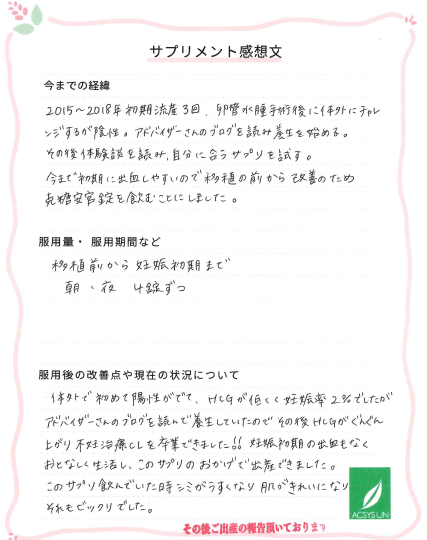 サプリメント感想文
今までの経緯
2015～2018年初期流産3回、卵管水腫手術後に体外にチャレ
ンジするが陰性。アドバイザーさんのブログを読み養生を始める。
その後体験談を読み、自分に合うサプリを試す。
今まで初期に出血しやすいので移植の前から改善のため
田七糖安宮錠を飲むことにしました。
服用量・服用期間など
移植前から妊娠初期まで
朝・夜 4錠ずつ
服用後の改善点や現在の状況について
体外で初めて陽性がでて、HCGが低く妊娠率2%でしたが
アドバイザーさんのブログを読んで養生していたのでその後HCGがぐんぐん
上がり不妊治療CLを卒業できました!! 妊娠初期の出血もなく
おとなしく生活し、このサプリのおかげで出産できました。
このサプリ飲んでいた時シミがうすくなり肌がきれいになり
それもビックリでした。
ACSYS UN
その後ご出産の報告頂いております